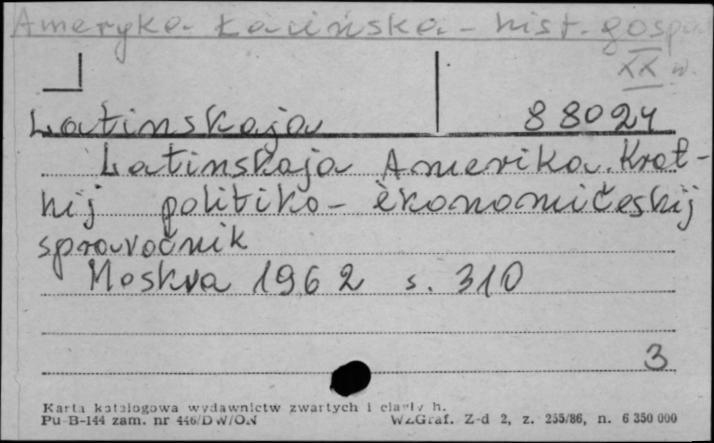 Ameryka Łacińska - hist. gosp.
XX w.
Latinskaja 88024
Latinskaja Amerika. Krat-
kij politiko-èkonomičeskij
spravočnik
Moskva 1962 s. 310
3
Karta katalogowa wydawnictw zwartych i ciągłych.
Pu-B-144 zam. nr 446/DW/ON WZGraf. Z-d 2, z. 255/86, n. 6 350 000